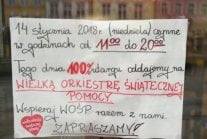 14 stycznia 2018r. (niedziela) czynne
w godzinach od 11:00 do 20:00
Tego dnia 100% utargu oddajemy na
WIELKĄ ORKIESTRĘ ŚWIĄTECZNEJ
POMOCY
Wspieraj WOŚP razem z nami.
ZAPRASZAMY!